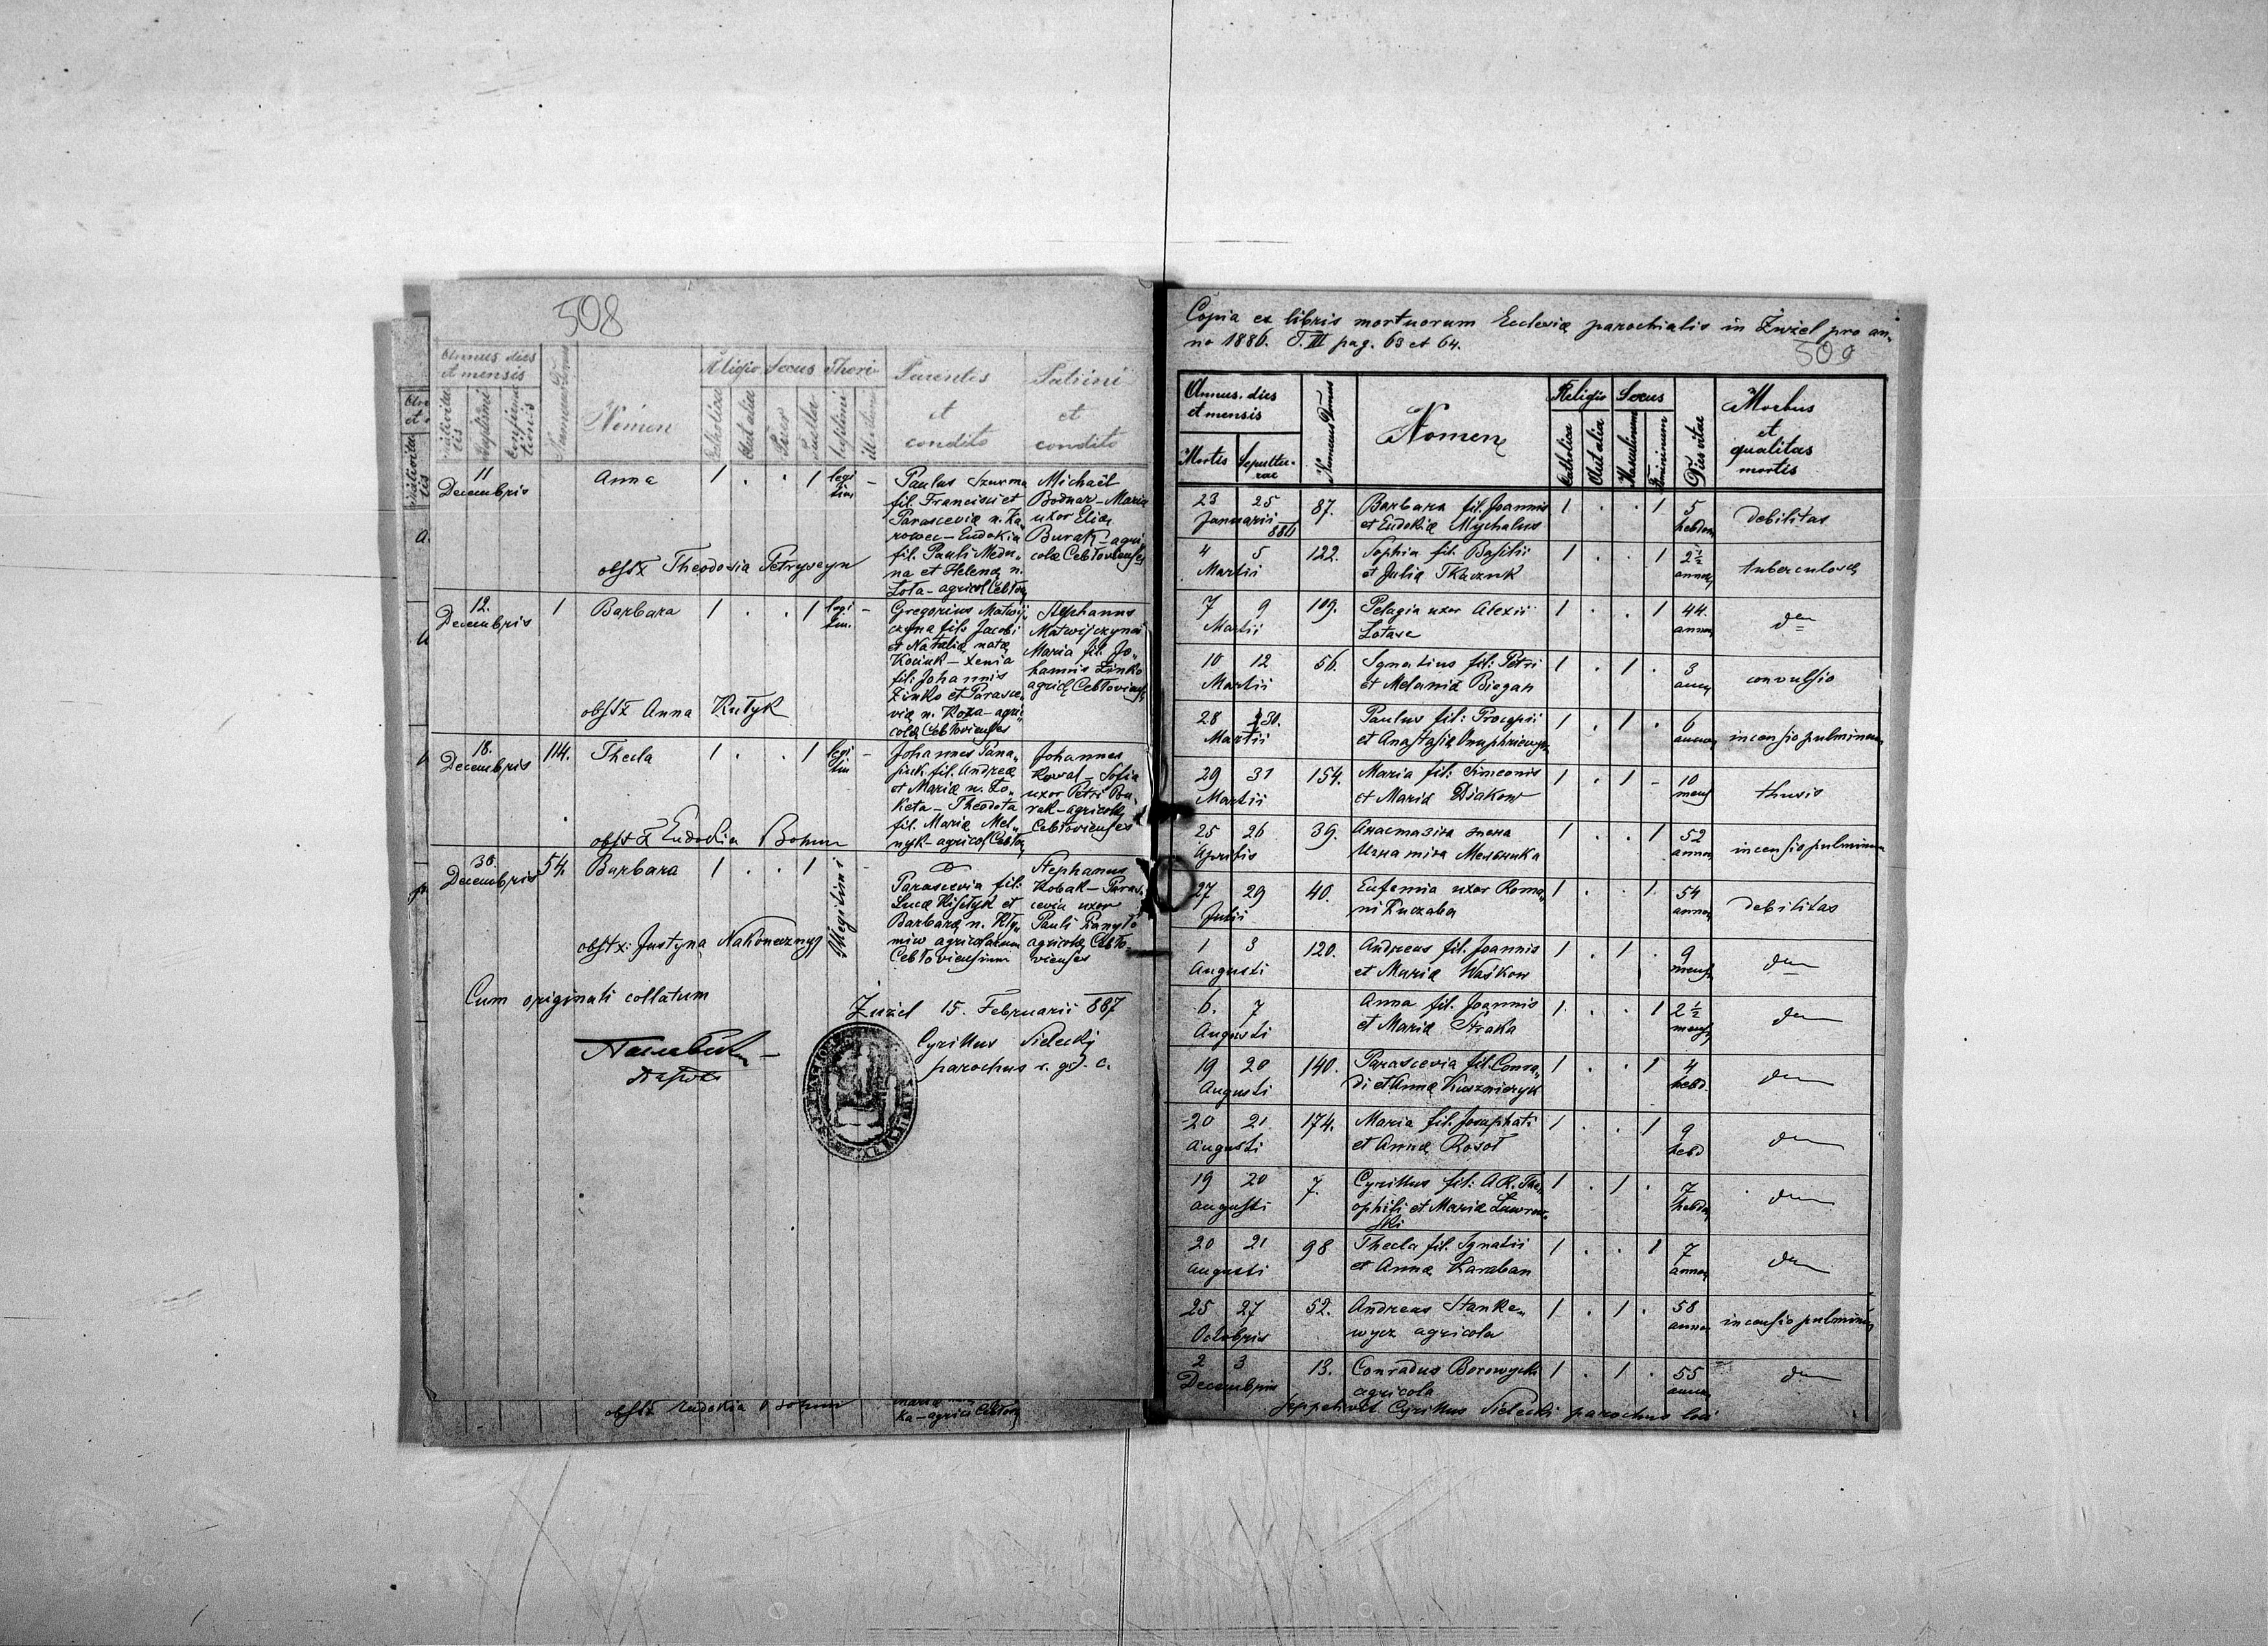 508
Annus dies et mensis
Numerus Domus
Nomen
Religio
Sexus
Thori
Parentes et conditio
Patrini et conditio
Catholica
Aut alia
Puer
Puella
11 Decembris
Anna
1 . . 1 legi tim –
Paulus Szurma
fil. Francisci et
Parasceviæ n. Ka„
rowec – Eudokia
fil. Pauli Medy„
na et Helenæ n.
Zoła – agricol Cebłov
Michaël
Bodnar – Maria
uxor Eliæ
Burak – agri„
colæ Cebłovienses
obstx Theodosia Petryszyn
12. Decembris
1
Barbara
1 . . 1 legi tim. –
Gregorius Matwij„
czyna fil. Jacobi
et Nataliæ natæ
Kociuk – Xenia
fil: Johannis
Zinko et Parasce„
viæ n. Koza – agri„
colæ Cebłovienses
Stephanus
Matwijczyna
Maria fil. Jo„
hannis Zinko
agricl Cebłoviens
obstx Anna Kutyk
18. Decembris
114.
Thecla
1 . . 1 legi tim –
Johannes Pana„
siuk fil. Andreæ
et Mariæ n. Ło„
keta – Theodota
fil. Mariæ Mel„
nyk – agricol Cebłov
Johannes
Kowal – Sofia
uxor Petri Bu„
rak – agricolæ
Cebłovienses
obstx Eudokia Bohun
30. Decembris
54
Barbara
1 . . 1 Illegitimi –
Parascevia fil:
Lucæ Kisełyk et
Barbaræ n. Kły„
miw agricolarum
Cebłoviensium
Stephanus
Kobak – Paras„
cevia uxor
Pauli Panyło
agricolæ Cebło„
vienses
obstx: Justyna Nakonecznyj
Cum originali collatum
Żużel 15. Februarii 887
Cyrillus Sielecky
parochus r. gr. c.
obstx Eudokia Bohun
Copia ex libris mortuorum Ecclesiæ parochialis in Żużel pro an„
no 1886. T. III pag. 63 et 64.
509
Annus, dies et mensis
Mortis
Sepulturae
Numerus Domus
Nomen
Religio
Catholica
Aut alia
Sexus
Masculinum
Femininum
Dies vitae
Morbus et qualitas mortis
23 25 Januarii 886 87. Barbara fil. Joannis et Eudokiæ Mychalus 1 . . 1 5 hebdom debilitas
4 5 Martii 122. Sophia fil. Basilii et Juliæ Tkaczuk 1 . . 1 2½ annor tuberculosis
7 9 Martii 109. Pelagia uxor Alexii Łotasz 1 . . 1 44. annor den
10 12 Martii 56. Ignatius fil: Petri et Melaniæ Biegan 1 . 1 . 3 anno convulsio
28 30. Martii Paulus fil: Procopii et Anastasiæ Onuphrieczyn 1 . 1 . 6 annor incensio pulminum
29 31 Martii 154. Maria fil: Simeonis et Mariæ Diakow 1 . 1 – 10 mens thusis
25 26 Aprilis 39. Анастазия жена Игнатия Мельника 1 . . 1 52 annor incensio pulminum
27 29 Julii 40. Eufemia uxor Roma„ ni Kuczaba 1 . . 1. 54 annor debilitas
1 3 Augusti 120. Andreas fil. Joannis et Mariæ Waśkow 1 . 1 . 9 mens den
6. 7 Augusti Anna fil. Joannis et Mariæ Straka 1. . . 1 2½ mens den
19 20 Augusti 140. Parascevia fil. Conra„ di et Annæ Kuszniryk 1 . . 1 4 hebd. den
20 21 Augusti 174. Maria fil. Josaphati et Annæ Rosoł 1 . . 1 9 hebd den
19 20 Augusti 7. Cyrillus fil: A.R. The„ ophili et Mariæ Ławrow„ ski 1 . 1 . 7 hebdo den
20 21 Augusti 98 Thecla fil. Ignatii et Annæ Karaban 1 . . 1 7 annor den
25 27 Octobris 52. Andreas Stanke„ wycz agricola 1 . 1 . 58 annor incensio pulminum
2 3 Decembris 13. Conradus Borowycki agricola 1 . 1 . 55 annor den
Seppelivit Cyrillus Sielecki parochus loci